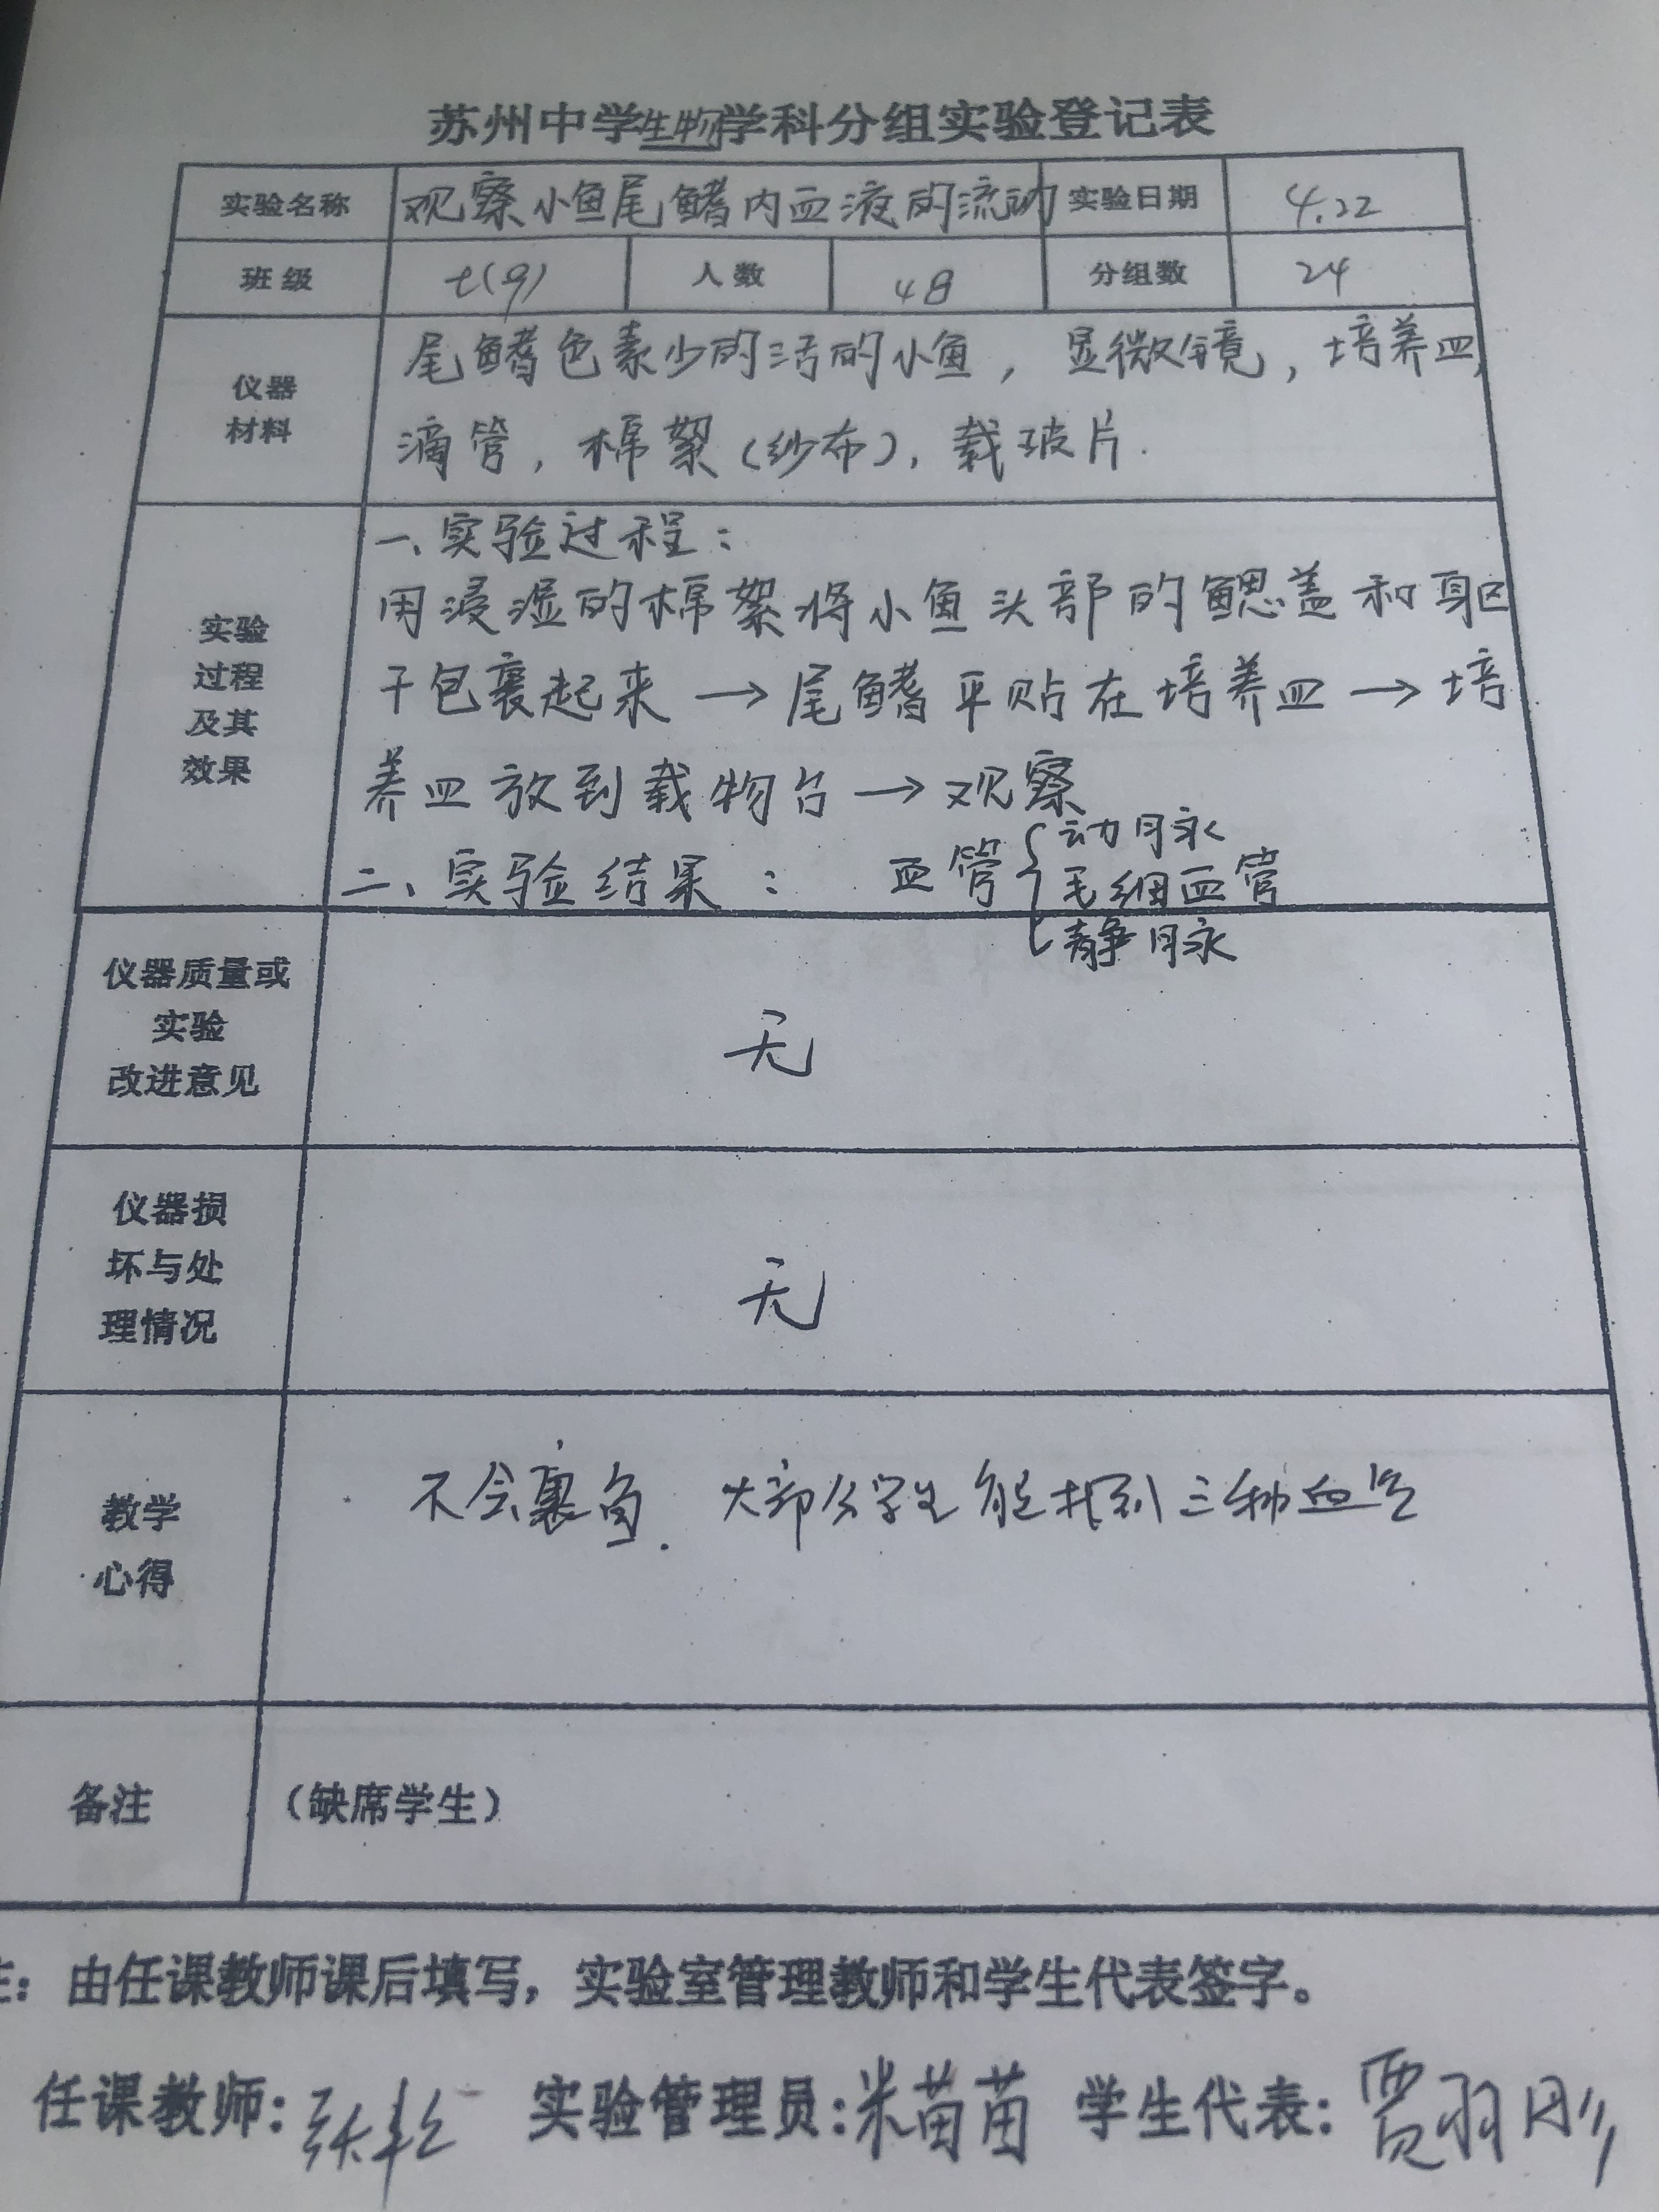 苏州中学生物学科分组实验登记表
实验名称 观察小鱼尾鳍内血液的流动 实验日期 4.22
班级 七(9) 人数 48 分组数 24
仪器
材料
尾鳍色素少的活的小鱼，显微镜，培养皿，
滴管，棉絮(纱布)，载玻片.
实验
过程
及其
效果
一、实验过程：
用浸湿的棉絮将小鱼头部的鳃盖和躯
干包裹起来→尾鳍平贴在培养皿→培
养皿放到载物台→观察
二、实验结果： 血管{动脉
毛细血管
静脉
仪器质量或
实验
改进意见
无
仪器损
坏与处
理情况
无
教学
心得
不会裹鱼. 大部分学生能找到三种血管
备注 （缺席学生）
注：由任课教师课后填写，实验室管理教师和学生代表签字。
任课教师: 张 实验管理员:米苗苗 学生代表: 贾羽彤